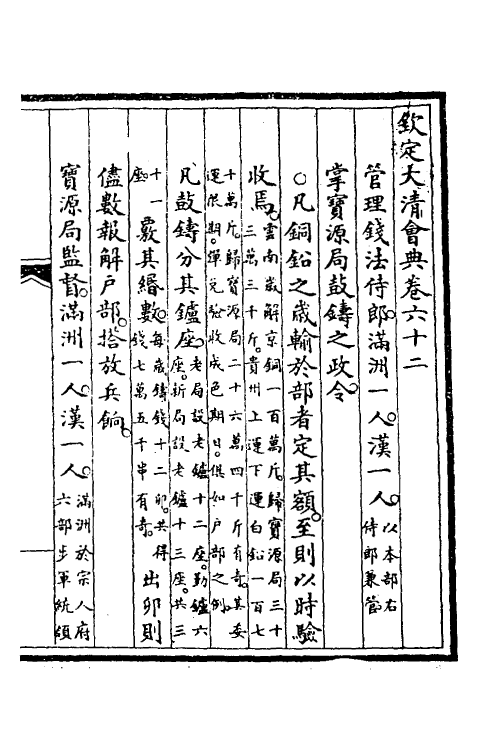 欽定大清會典卷六十二
管理錢法侍郎滿洲一人漢一人以本部右侍郎兼管
掌寶源局鼓鑄之政令
○凡銅鉛之歲輸於部者定其額至則以時驗
收焉雲南歲解京銅一百萬斤歸寶源局三十三萬三千斤貴州上運下運白鉛一百七
十萬斤歸寶源局二十六萬四千斤有奇其委運限期彈兌驗收成色期日俱如戶部之例
凡鼓鑄分其鑪座老局設老鑪十二座勤鑪六座新局設老鑪十三座共三
十一座覈其緡數每歲鑄錢十二卯共得錢七萬五千串有奇出卯則
儘數報解戶部搭放兵餉
寶源局監督滿洲一人漢一人滿洲於宗人府六部步軍統領